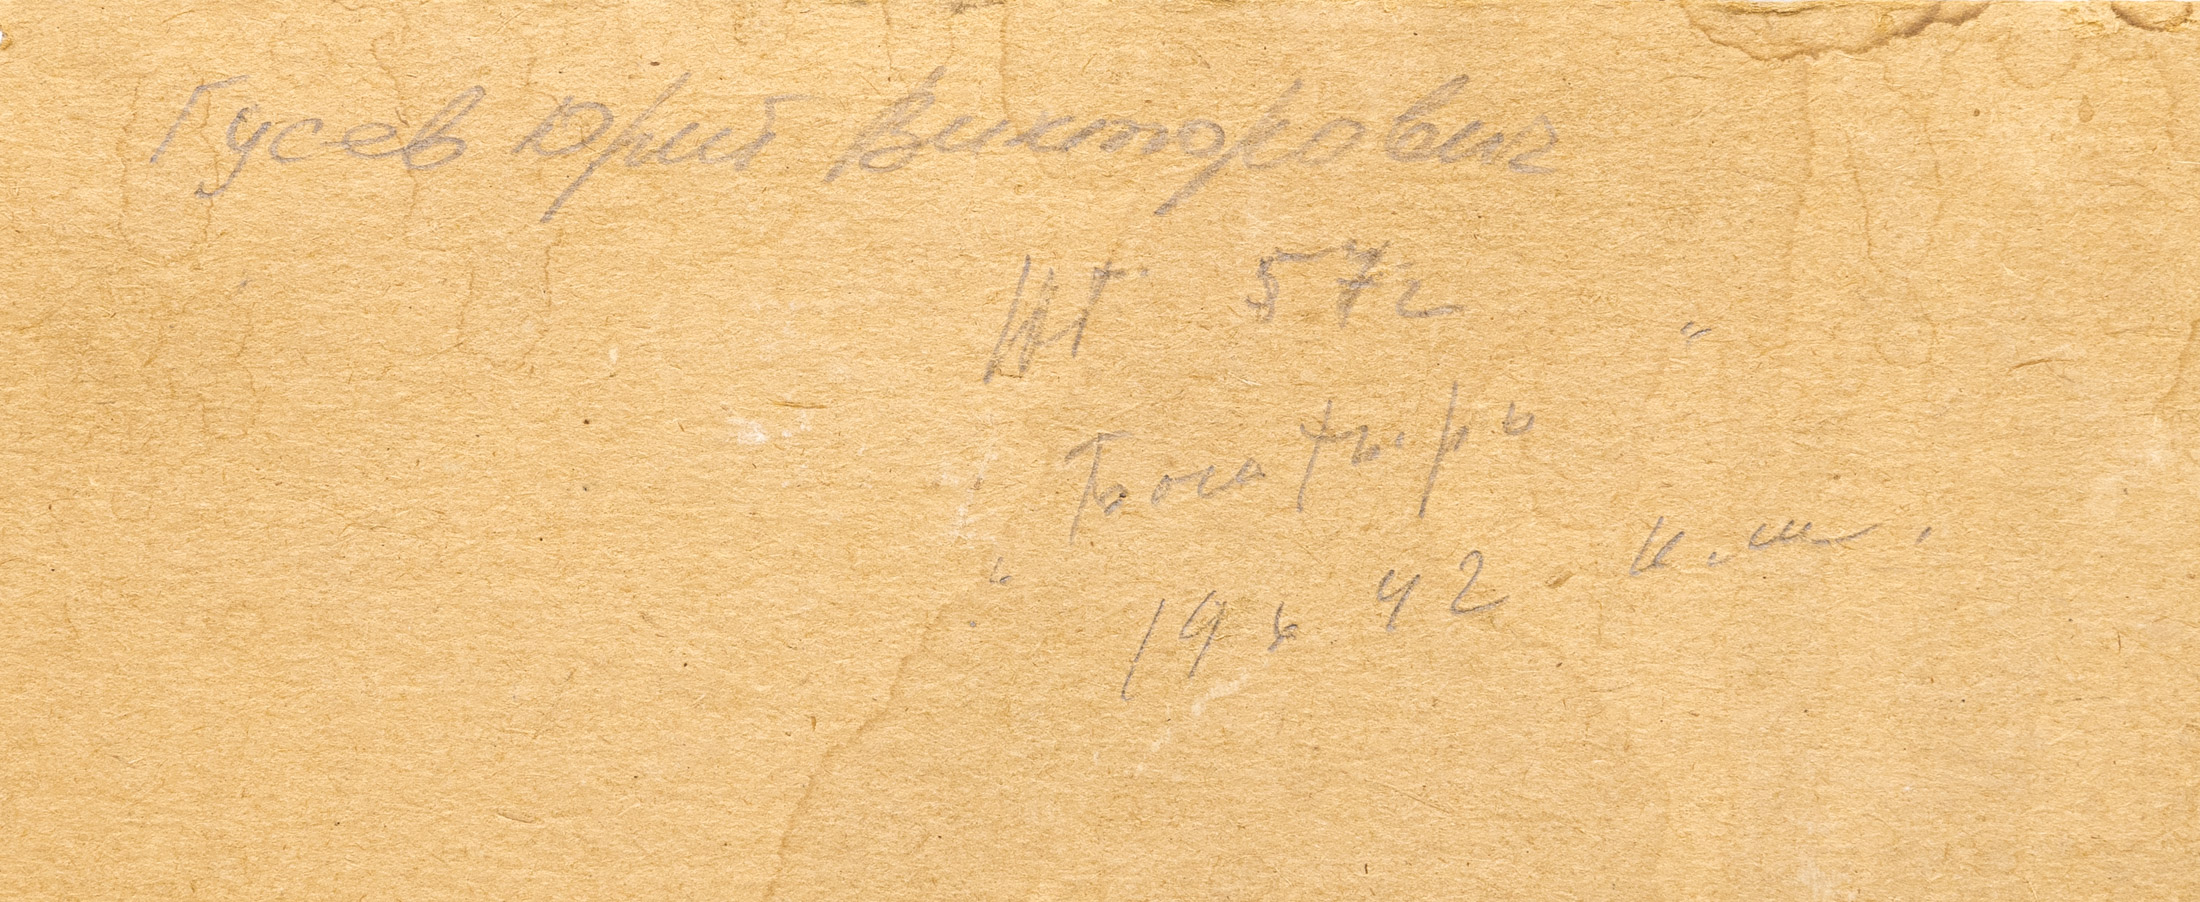 Гусев Юрий Викторович
57г
"Богатырь"
19 х 42 к.м.